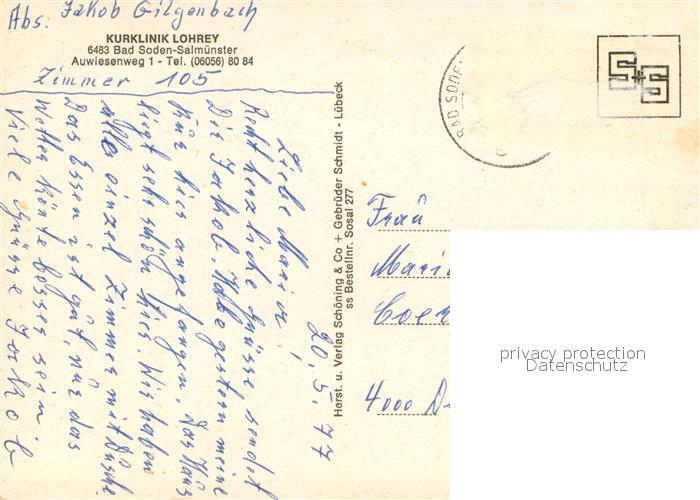 Abs: Jakob Gilgenbach
KURKLINIK LOHREY
6483 Bad Soden-Salmünster
Auwiesenweg 1 - Tel. (06056) 80 84
Zimmer 105
20.5.77
Liebe Maria!
Recht herzliche Grüsse sendet
Dir Jakob. Habe gestern meine
Kur hier angefangen, das Haus
liegt sehr schön hier. Wir haben
alle einzel Zimmer mit Dusche.
Das Essen ist gut, nur das
Wetter könte besser sein.
Viele Grüsse Jakob
Herst. u. Verlag Schöning & Co + Gebrüder Schmidt - Lübeck
ss Bestellnr. Sosal 277
BAD SODE
S+S
Frau
Mari
4000 D
privacy protection
Datenschutz